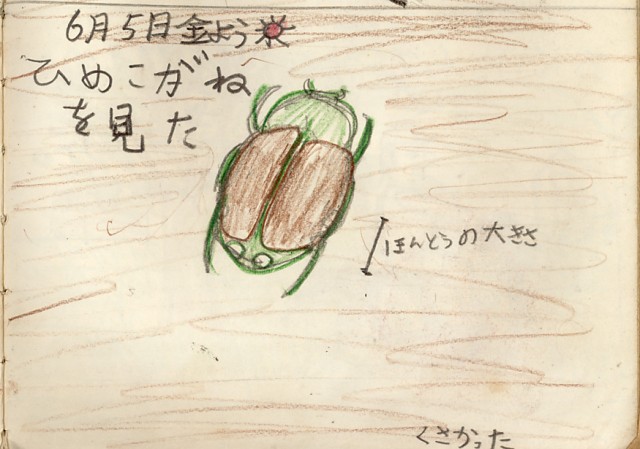 6月5日金よう
ひめこがね
を見た
ほんとうの大きさ
くさかった